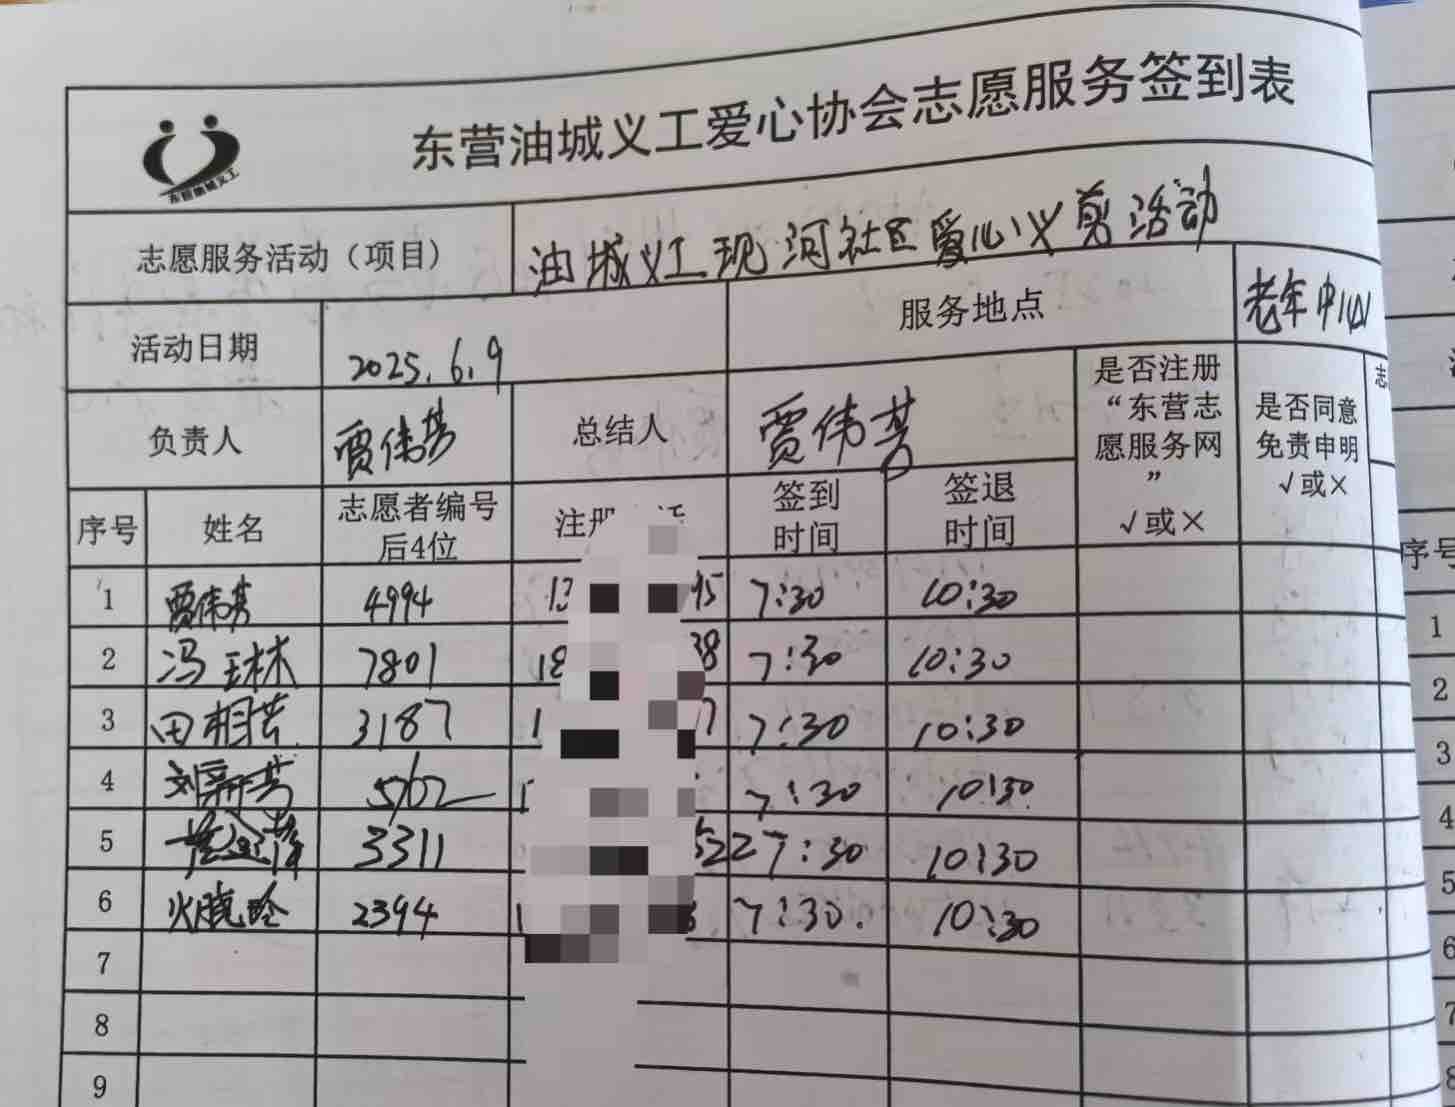 东营油城义工爱心协会志愿服务签到表
东营油城义工
志愿服务活动（项目） 油城义工现河社区爱心义剪活动
活动日期 2025.6.9 服务地点 老年中心
负责人 贾伟芳 总结人 贾伟芳
是否注册“东营志愿服务网”√或×
是否同意免责申明√或×
志
序号 姓名 志愿者编号后4位 注册 签到时间 签退时间
1 贾伟芳 4994 13 95 7:30 10:30
2 冯玉林 7801 18 38 7:30 10:30
3 田相芳 3187 1 7 7:30 10:30
4 刘新芳 5162 1 7:30 10:30
5 3311 522 7:30 10:30
6 2394 1 7:30. 10:30
7
8
9
序号
1
2
3
4
5
6
7
8